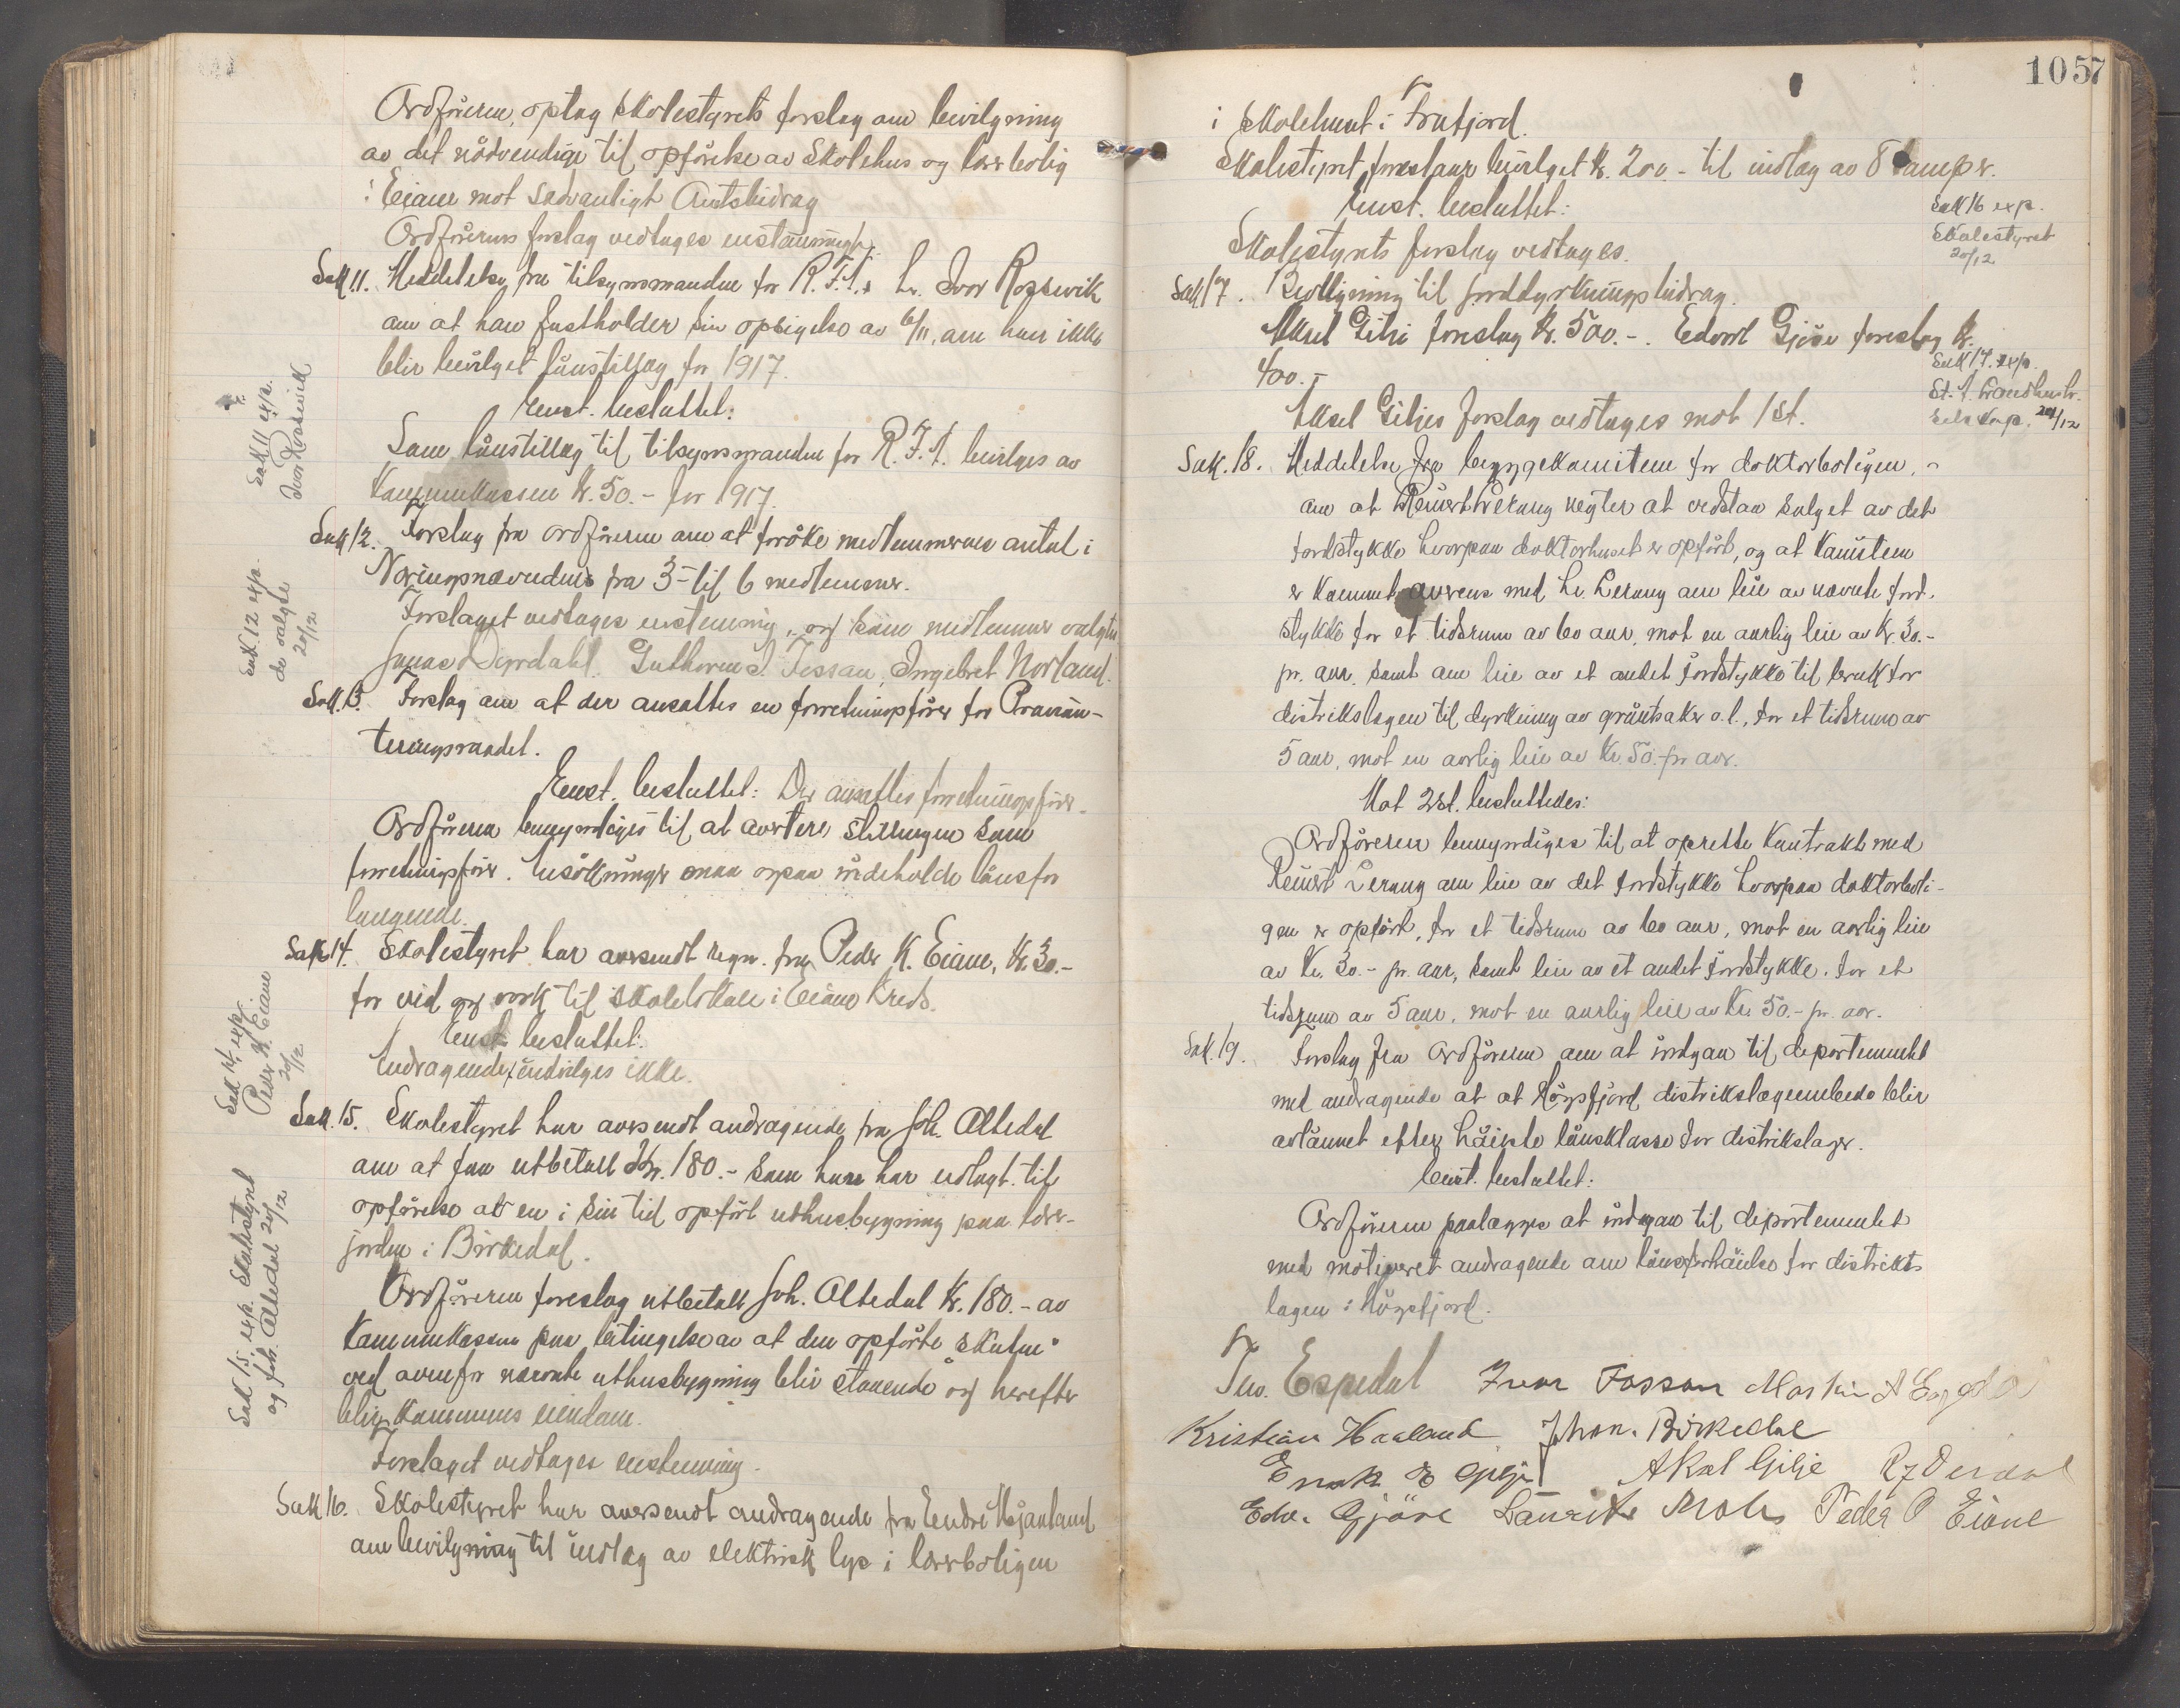 Ordföreren optog Skolestyrets forslag om bevilgning
av det nödvendige til opförelse av Skolehus og lærerbolig
i Eiane mot sedvanligt Amtsbidrag
Ordförerens forslag vedtages enstemmigt.
Sak 11. Meddelelse fra tilsynsmanden for R.F.A. hr. Ivar Rossevik
om at han fastholder sin opsigelse av 6/11, om han ikke
blir bevilget lönstillæg for 1917.
Enst. besluttet:
Som lönstillæg til tilsynsmanden for R.F.A. bevilges av
Kommunekassen kr. 50.- for 1917.
Sak 12. Forslag fra ordföreren om at foröke medlemmernes antal i
Næringsnævnden fra 3 til 6 medlemmer.
Forslaget vedtages enstemmig, og som medlemmer valgtes
Jonas Dyrdahl, Guthorm S. Fossan, Ingebret Norland.
Sak 13. Forslag om at der ansættes en forretningsförer for Provian-
teringsraadet.
Enst. besluttet: Der ansættes forretningsförer.
Ordföreren bemyndiges til at avertere stillingen som
forretningsförer. Ansökninger maa ogsaa indeholde lönsfor
langende.
Sak 14. Skolestyret har oversendt regn. fra Peder K. Eiane, kr. 30.-
for ved og vask til skolelokale i Eiane Kreds.
Enst. besluttet:
Andragendet indvilges ikke.
Sak 15. Skolestyret har oversendt andragende fra Joh. Oltedal
om at faa utbetalt Kr. 180.- som han har utlagt til
opförelse av en i sin tid opfört uthusbygning paa lærer-
jorden i Birkedal.
Ordföreren foreslog utbetalt Joh. Oltedal kr. 180.- av
Kommunekassen paa betingelse av at den opförte skutne
ved ovenfor nævnte uthusbygning blir staaende og herefter
blir Kommunens eiendom.
Forslaget vedtages enstemmig.
Sak 16. Skolestyret har oversendt andragende fra Endre Mjaaland
om bevilgning til indlæg av elektrisk lys i lærerboligen
Sak 11 exp.
Ivar Rossevik
Sak 12 exp.
de valgte
20/12
Sak 14, exp.
Peder K. Eiane
20/12
Sak 15, exp. Skolestyret
og Joh. Oltedal 20/12
1057
i Skolehuset i Frafjord.
Skolestyret foreslaar bevilget kr. 200.- til indlæg av 8 lamper.
Enst. besluttet:
Skolestyrets forslag vedtages.
Sak 16 exp.
Skolestyret
20/12
Sak 17. Bevilgning til jorddyrkningsbidrag.
Aksel Gilje foreslog kr. 500.-. Edvard Gjöse foreslog kr.
400.-
Aksel Giljes forslag vedtages mot 1 st.
Sak 17. exp.
St. A. Landhush.
Selskap. 20/12
Sak. 18. Meddelelse fra byggekomiteen for doktorboligen,
om at Reiert Lerang negter at vedstaa salget av det
jordstykke hvorpaa doktorhuset er opfört, og at Komiteen
er kommet overens med hr. Lerang om leie av nævnte jord-
stykke for et tidsrum av 60 aar, mot en aarlig leie av kr 30.-
pr. aar, samt om leie av et andet jordstykke til bruk for
distriktslægen til dyrkning av grönsaker o.l., for et tidsrum av
5 aar, mot en aarlig leie av kr. 50.- pr aar.
Mot 2 st. besluttedes:
Ordföreren bemyndiges til at oprette Kontrakt med
Reiert Lerang om leie av det jordstykke hvorpaa doktorboli-
gen er opfört, for et tidsrum av 60 aar, mot en aarlig leie
av kr. 30.- pr. aar, samt leie av et andet jordstykke, for et
tidsrum av 5 aar, mot en aarlig leie av kr. 50.- pr. aar.
Sak. 19. Forslag fra Ordföreren om at indgaa til departementet
med andragende at at Högsfjord distriktslægeembede blir
avlönnet efter höieste lönsklasse for distriktslæger.
Enst. besluttet:
Ordföreren paalægges at indgaa til departementet
med motiveret andragende om lönsforhöielse for distrikts
lægen i Högsfjord.
Ths. Espedal Ivar Fossan Martin A Espedal
Kristian Haaland Jhon. Birkedal
Enok E Gilje Aksel Gilje
Edv. Gjöse Laurits Moles Peder O Eiane